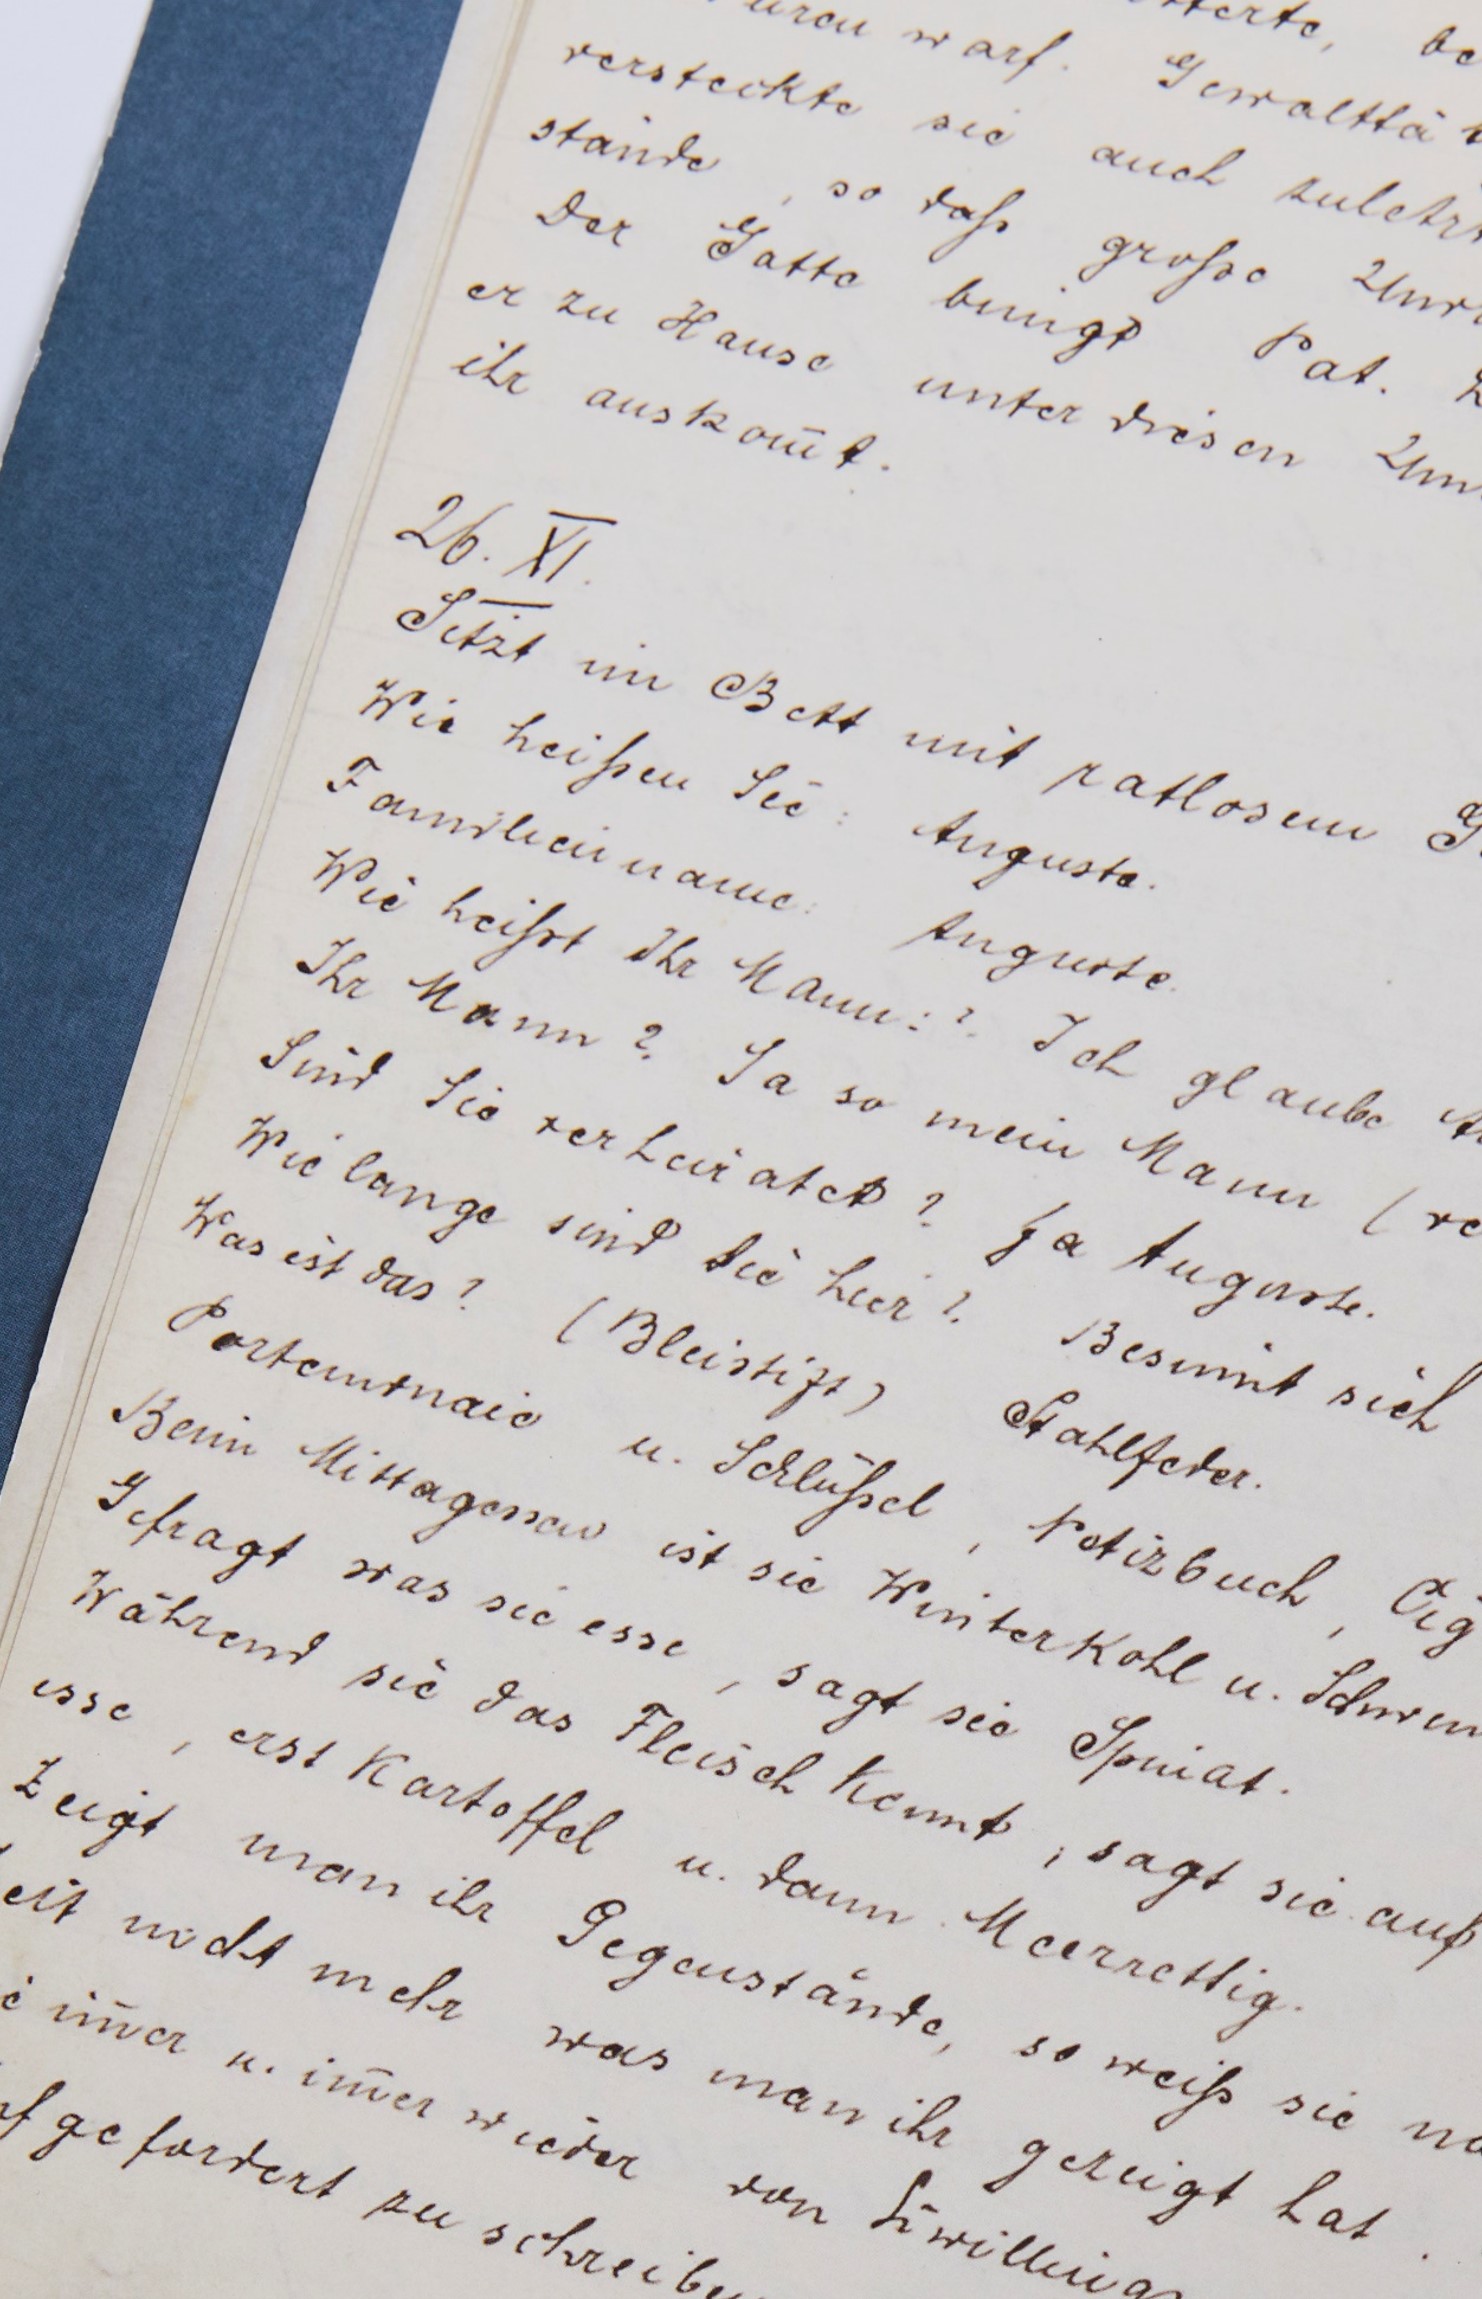 warf. Gewalttä
versteckte sie auch zuletzt
stände, so daß große
Der Gatte bringt Pat.
er zu Hause unter diesen Um
ihr auskom̅t.
26. XI.
Sitzt im Bett mit ratlosem G
Wie heißen Sie: Auguste.
Familienname: Auguste.
Wie heißt Ihr Mann:? Ich glaube
Ihr Mann? Ja so mein Mann (ve
Sind Sie verheiratet? Ja Auguste.
Wie lange sind Sie hier? Besinnt sich
Was ist das? (Bleistift) Stahlfeder.
Portemonaie u. Schlüßel, Notizbuch, Cig
Beim Mittagessen ist sie Winterkohl u. Schwein
Gefragt was sie esse, sagt sie Spinat.
Während sie das Fleisch kennt, sagt sie auf
esse, erst Kartoffel u. dann Meerrettig.
Zeigt man ihr Gegenstände, so weiß sie na
eit nicht mehr was man ihr gezeigt hat.
im̅er u. im̅er wieder von Zwilling
fgefordert zu schreiben